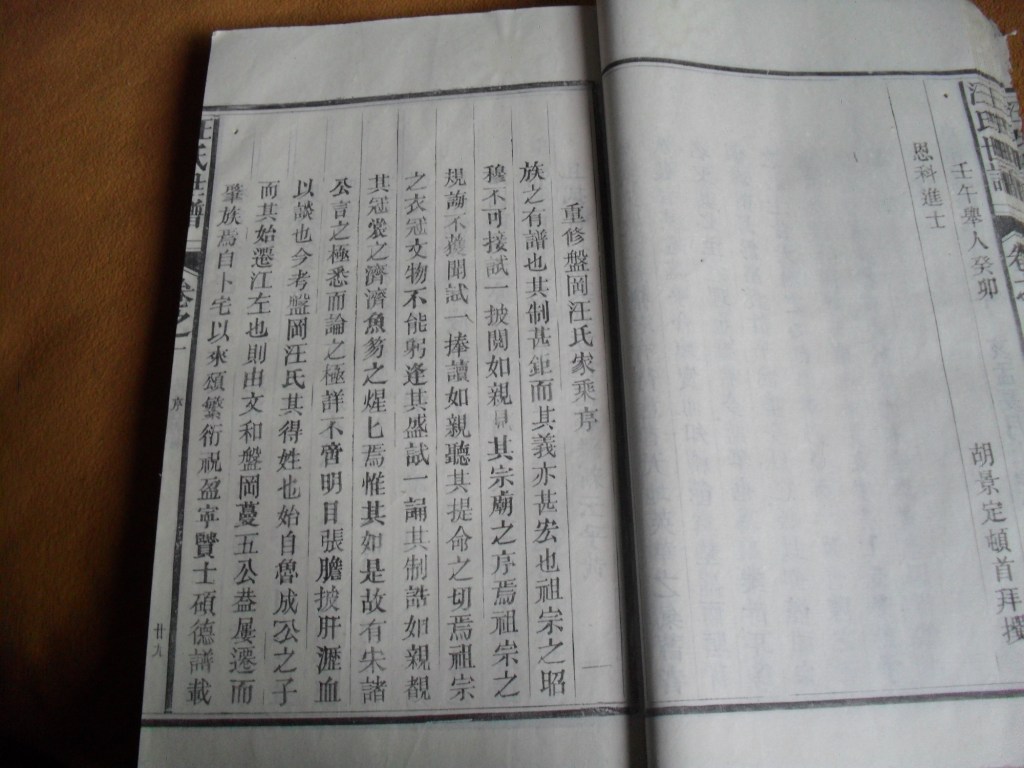 汪氏世譜
壬午舉人癸卯
恩科進士
胡景定頓首拜撰
重修盤岡汪氏家乘序
族之有譜也其制甚鉅而其義亦甚宏也祖宗之昭
穆不可接試一披閱如親見其宗廟之序焉祖宗之
規誨不獲聞試一捧讀如親聽其提命之切焉祖宗
之衣冠文物不能躬逢其盛試一誦其制誥如親覩
其冠裳之濟濟魚笏之煌匕焉惟其如是故有宋諸
公言之極悉而論之極詳不啻明目張膽披肝瀝血
以談也今考盤岡汪氏其得姓也始自魯成公之子
而其始遷江左也則由文和盤岡蔓五公葢屢遷而
肇族焉自卜宅以來類繁衍祝盈寜賢士碩德譜載
汪氏世譜
卷之一
序
廿九